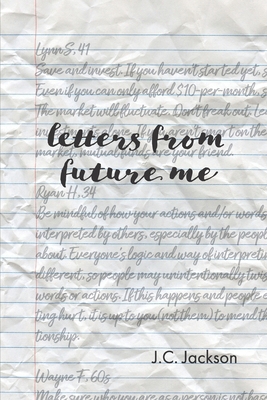 Lynn S, 41
Save and invest. If you haven't started yet, s
Even if you can only afford $10-per-month, s
The market will fluctuate. Don't break out. Le
market, mutual funds are your friend.
letters from
future me
Ryan H, 34
Be mindful of how your actions and/or words
interpreted by others, especially by the people
about. Everyone's logic and way of interpreting
different, so people may unintentionally twis
words or actions. If this happens and people e
ting hurt, it is up to you (not them) to mend th
tionship.
J.C. Jackson
Wayne F, 60s
Make sure who you are as a person is not bas